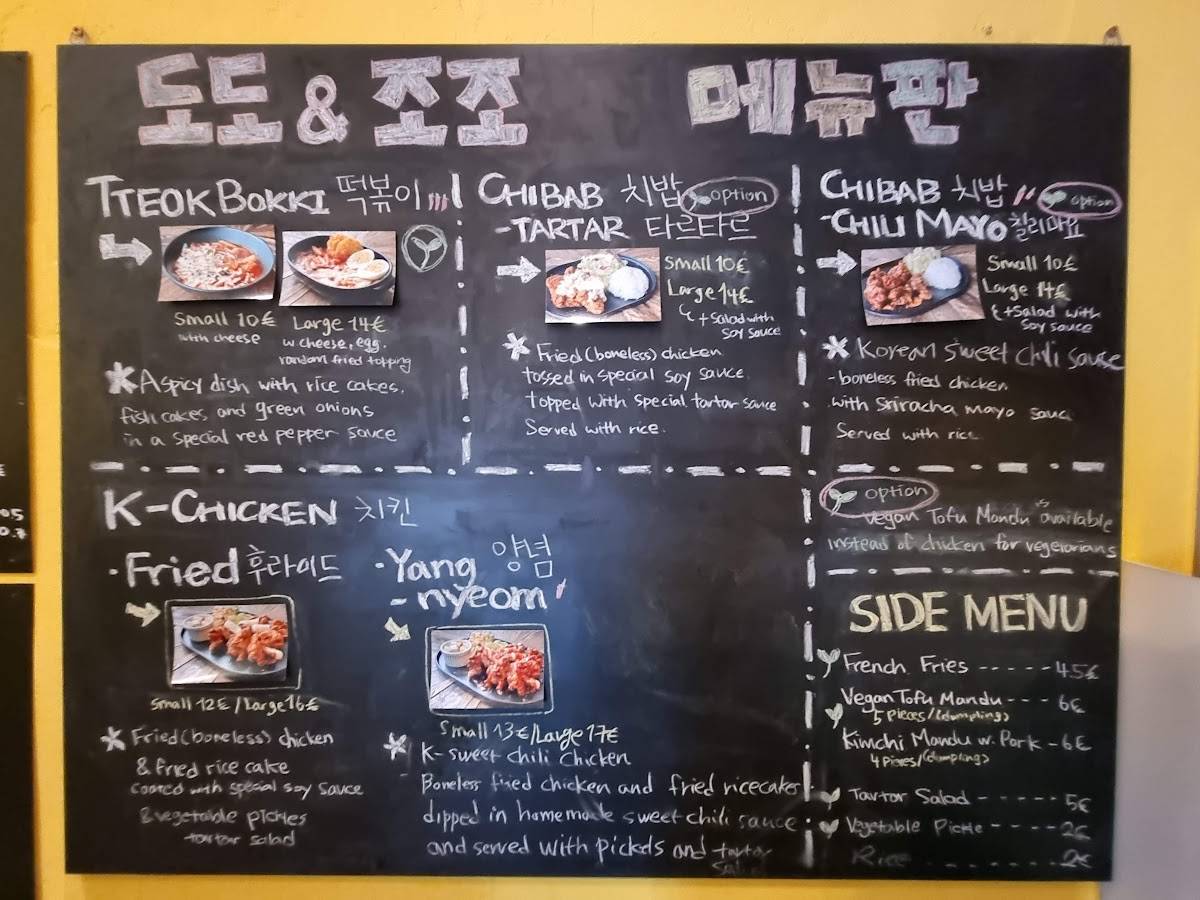 도도 & 쪼쪼 메뉴판
TTEOKBOKKI 떡볶이
Small 10€
with cheese
Large 14€
w cheese, egg.
random fried topping
* A spicy dish with rice cakes,
fish cakes and green onions
in a special red pepper sauce
CHIBAB 치밥 option
-TARTAR 타르타르
Small 10€
Large 14€
+ Salad with
soy sauce
* Fried (boneless) chicken
tossed in special soy sauce
topped with special tartar sauce
Served with rice.
CHIBAB 치밥 option
-CHILI MAYO 칠리마요
Small 10€
Large 14€
+Salad with
soy sauce
* Korean sweet chili sauce
- boneless fried chicken
with Sriracha mayo sauc
Served with rice
option
Vegan Tofu Mandu is available
instead of chicken for vegetarians
K-CHICKEN 치킨
· Fried 후라이드
Small 12€ / Large 16€
* Fried (boneless) chicken
& fried rice cake
coated with special soy sauce
& vegetable pickles
tartar salad
· Yang 양념
- nyeom
Small 13€/Large 17€
* K-sweet chili chicken
Boneless fried chicken and fried ricecakes
dipped in homemade sweet chili sauce
and served with pickels and tartar
SIDE MENU
French Fries ----- 4.5€
Vegan Tofu Mandu --- 6€
5 pieces/(dumplings)
Kimchi Mandu w. Pork - 6€
4 pieres/(dumplings)
Tartar Salad ----- 5€
Vegetable Pickle ---- 2€
Rice ------ 2€